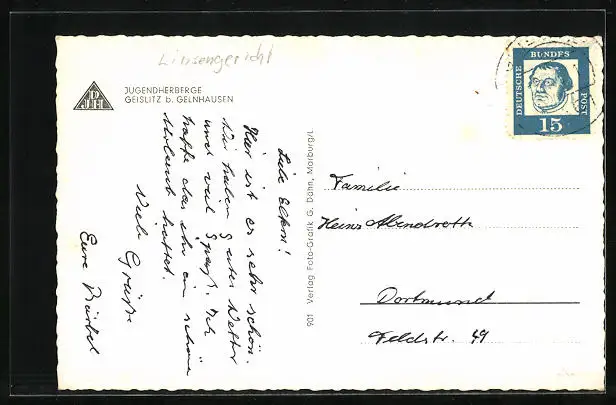 Linsengericht
DJH
JUGENDHERBERGE
GEISLITZ b. GELNHAUSEN
Liebe Eltern!
Hier ist es sehr schön.
Wir haben guter Wetter
und viel Spaß. Ich
hoffe das ihr ein schöne
hattet.
Viele Grüße
Eure Bärbel
901 Verlag Foto-Grafik G. Dähn, Marburg/L.
DEUTSCHE
BUNDES
POST
15
Familie
Heinz Abendroth
Dortmund
Feldstr. 49